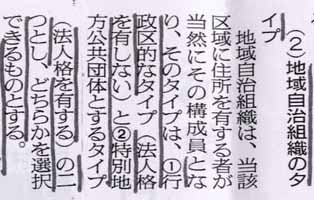 （２）地域自治組織のタ
イプ
地域自治組織は、当該
区域に住所を有する者が
当然にその構成員とな
り、そのタイプは、①行
政区的なタイプ（法人格
を有しない）と②特別地
方公共団体とするタイプ
（法人格を有する）の二
つとし、どちらかを選択
できるものとする。